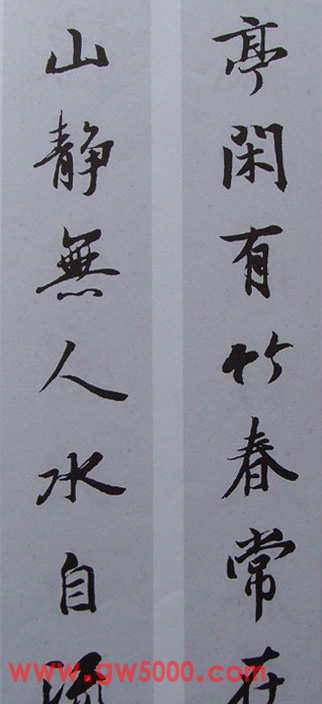 亭閑有竹春常在
山静無人水自流
www.gw5000.com